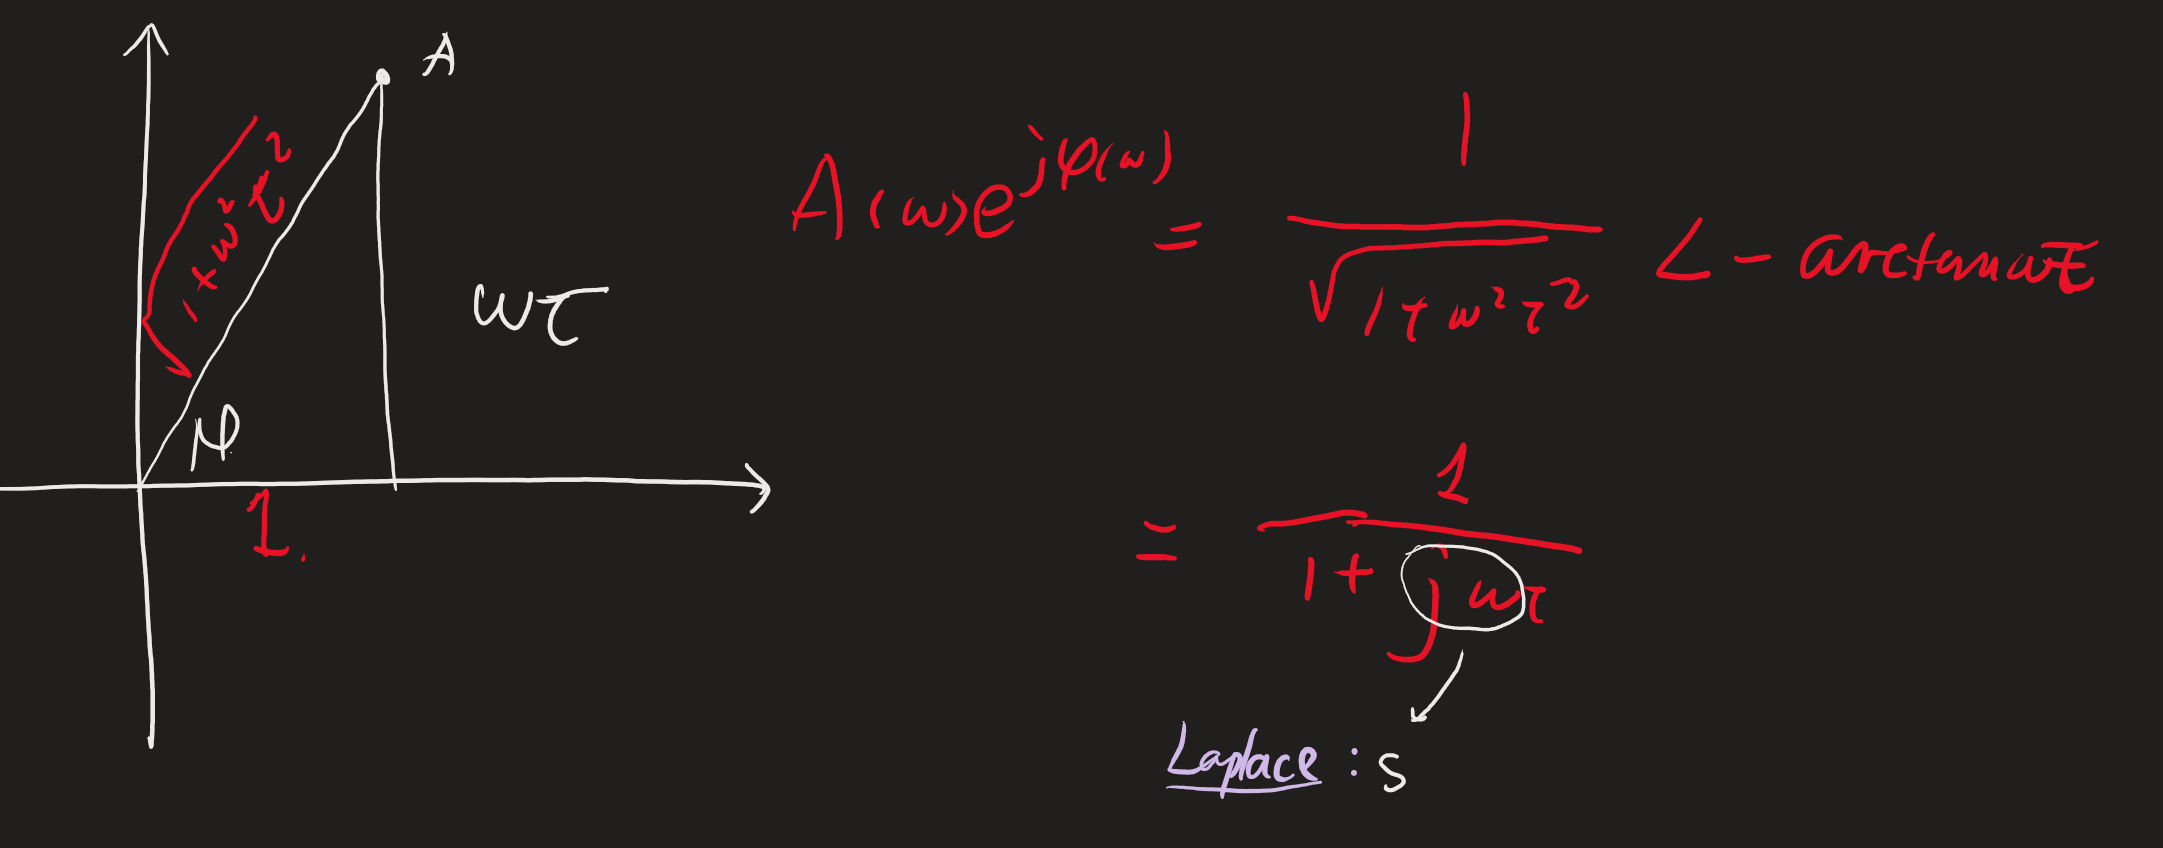 A
√1+ω²τ²
ωτ
φ
1.
A(ω)e^{jφ(ω)} = 1/√(1+ω²τ²) ∠ - arctanωτ
= 1/(1+jωτ)
Laplace : s